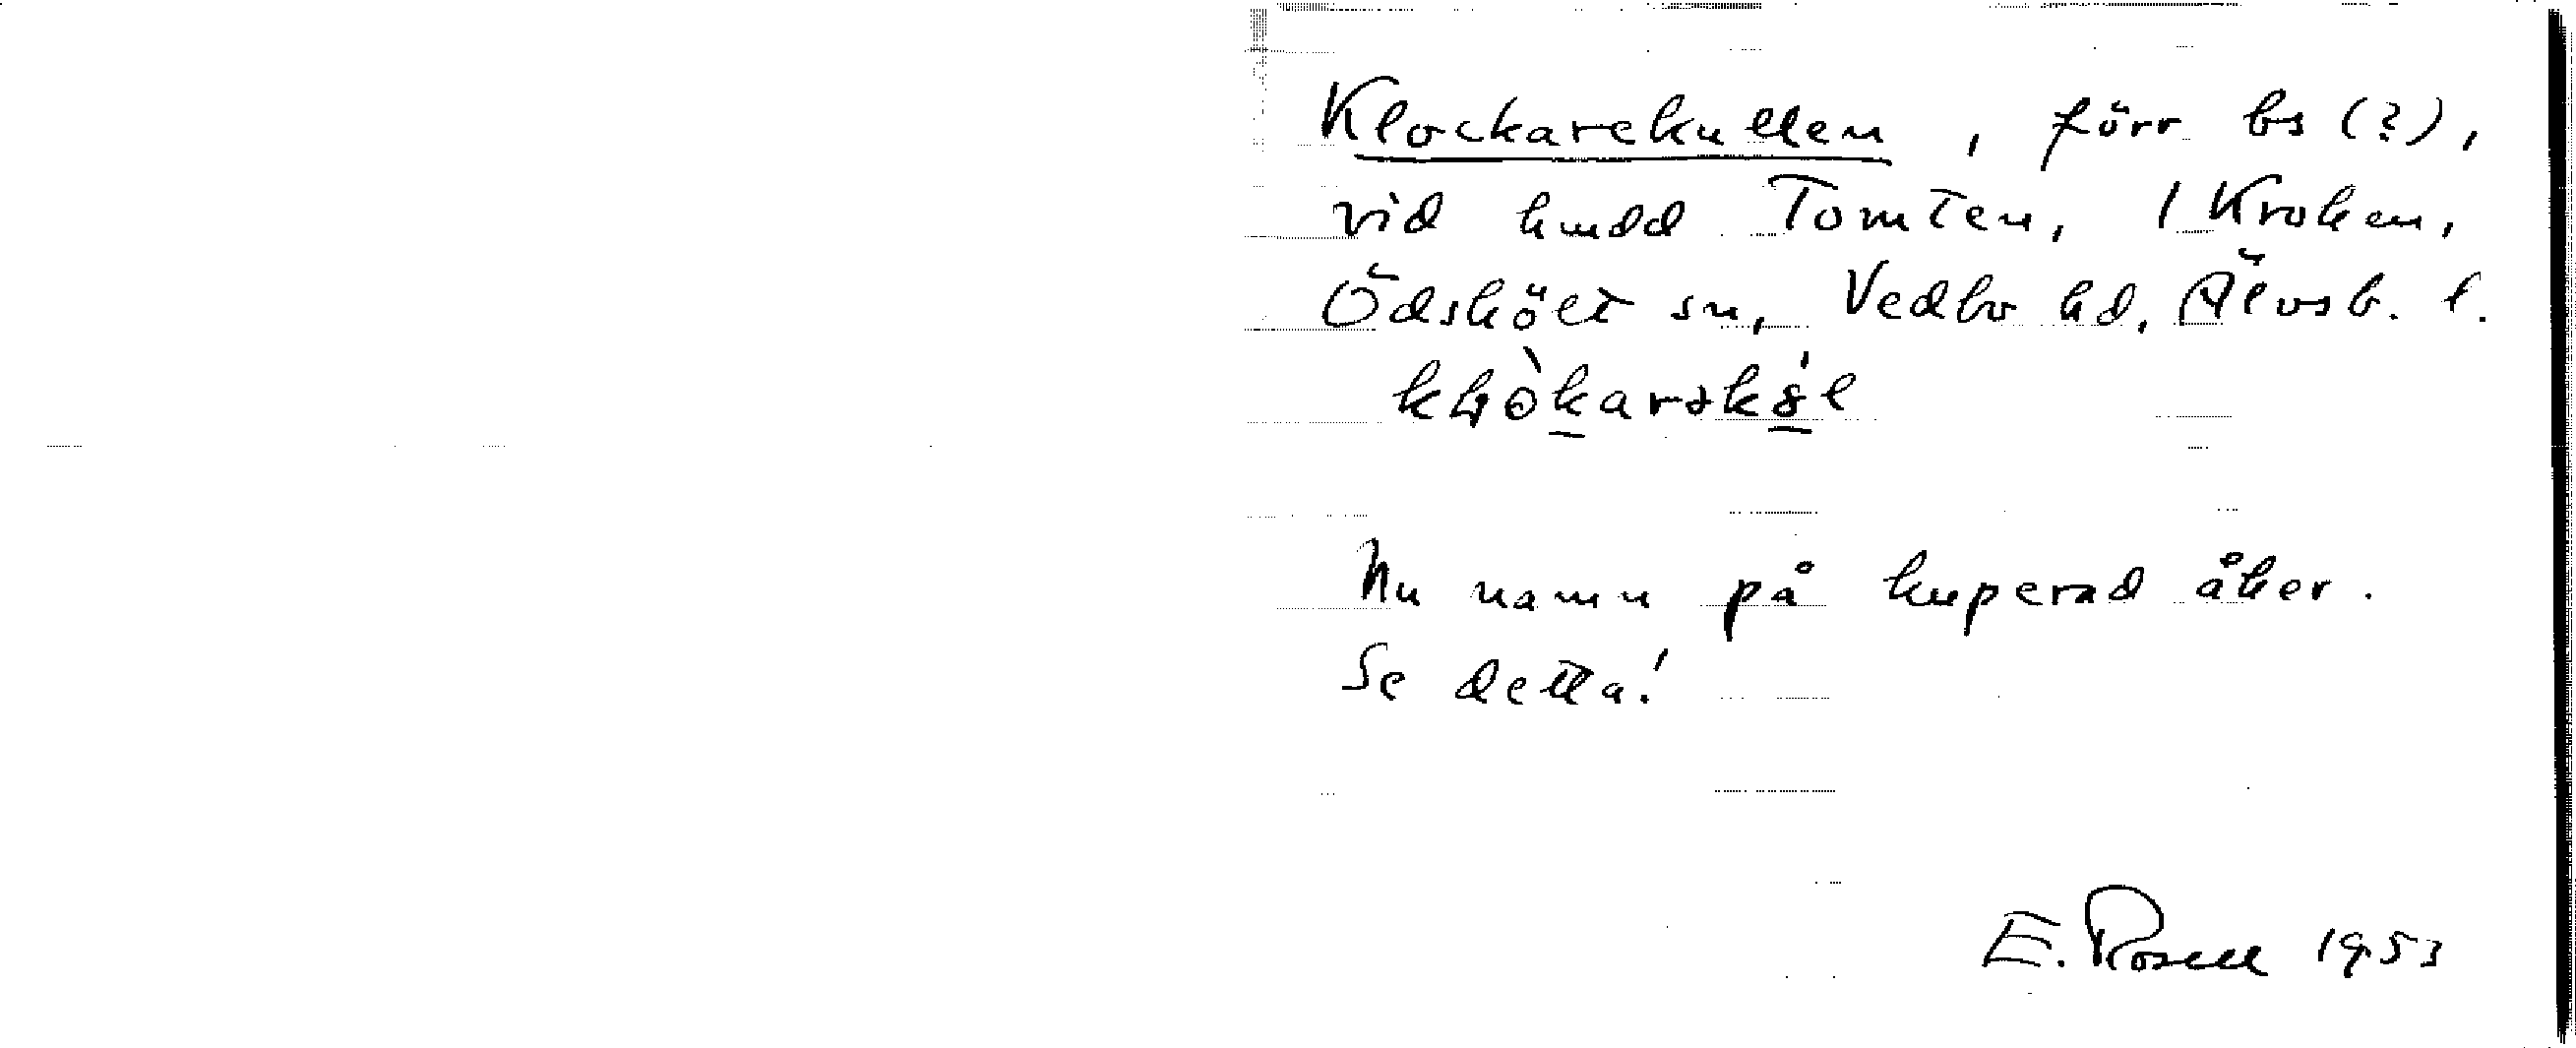 Klockarekullen, förr bs (?),
vid hmdd Tomten, 1 Kroken,
Ödskölt sn, Vedbo hd, Älvsb. l.
Nu namn på kuperad åker.
Se detta!
E. Rosell 1953